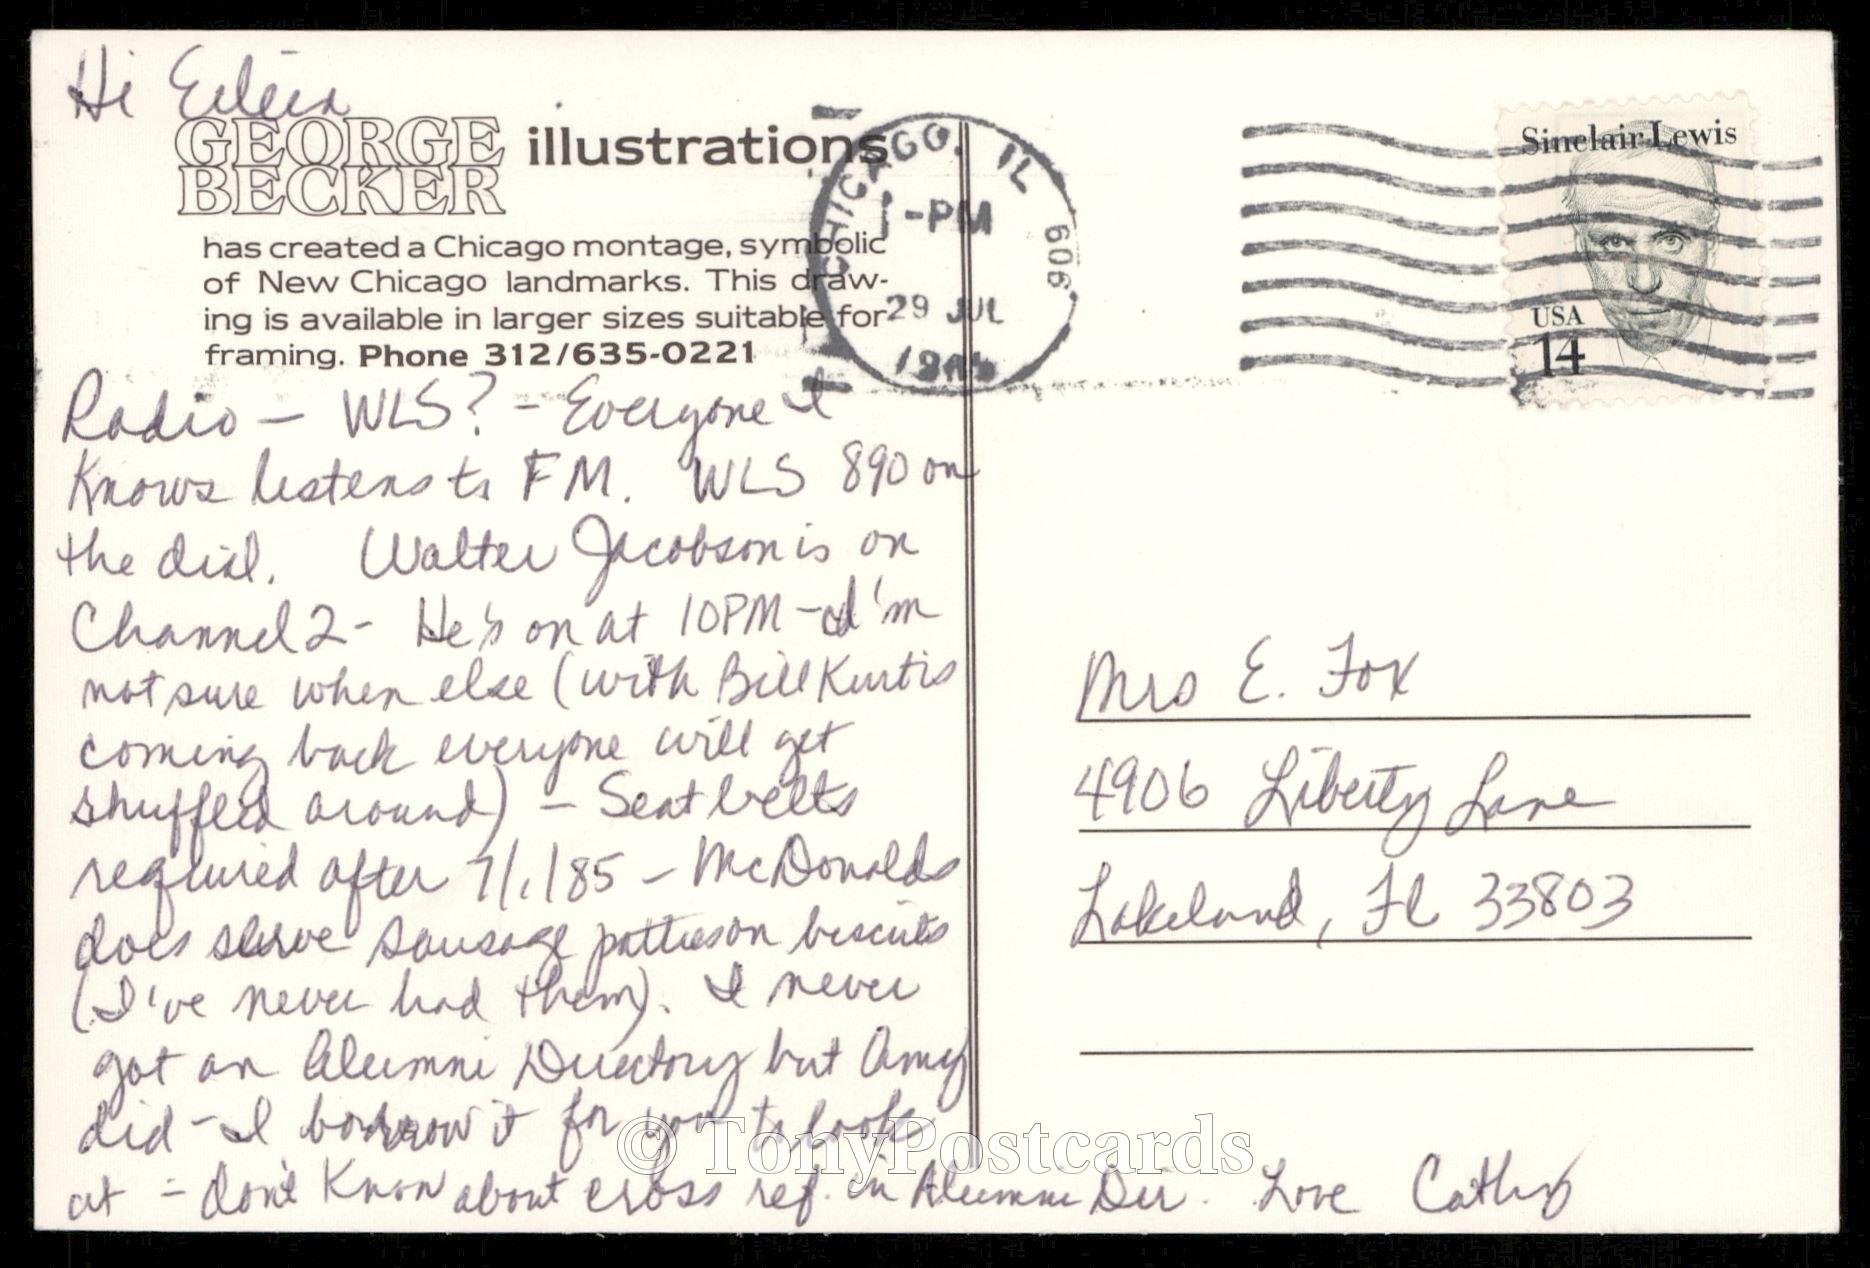 Hi Eileen
GEORGE
BECKER illustrations
has created a Chicago montage, symbolic
of New Chicago landmarks. This draw-
ing is available in larger sizes suitable for
framing. Phone 312/635-0221
Radio - WLS? - Everyone I
know listens to FM. WLS 890 on
the dial. Walter Jacobson is on
Channel 2 - He's on at 10PM - I'm
not sure when else (with Bill Kurtis
coming back everyone will get
shuffled around) - Seat belts
required after 7/1/85 - McDonalds
does serve sausage patties on biscuits
(I've never had them). I never
got an Alumni Directory but Amy
did - I borrow it for you to look
at - don't know about cross ref. in Alumni Dir. Love Cathy
CHICAGO, IL 606
1-PM
29 JUL
Sinclair Lewis
USA
14
Mrs E. Fox
4906 Liberty Lane
Lakeland, Fl 33803
© TonyPostcards